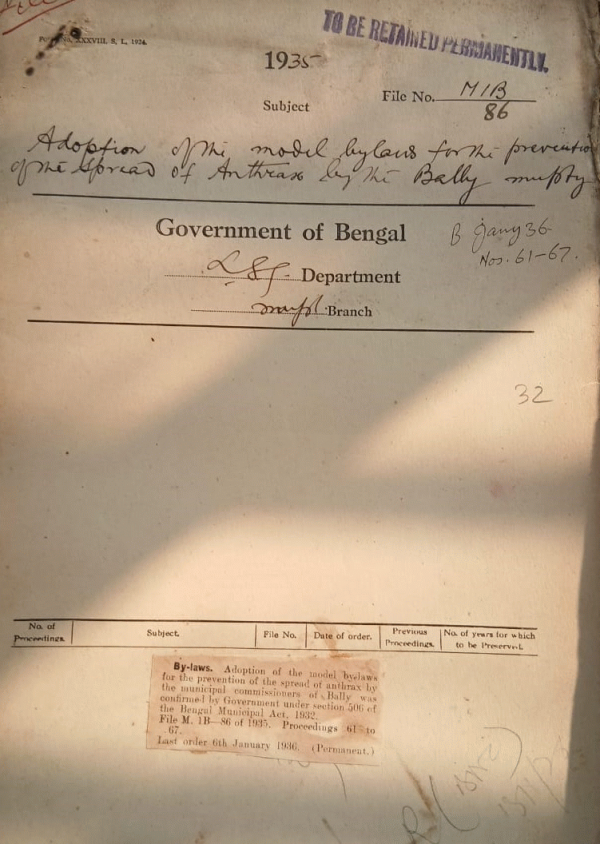 TO BE RETAINED PERMANENTLY.
XXXVIII, S. I., 1934.
1935
File No. M/1B
86
Subject
Adoption of the model bylaws for the prevention
of the spread of Anthrax by the Bally mupty
Government of Bengal
B Jany 36
Nos. 61-67.
L.S.G. Department
mupl Branch
32
No. of Proceedings.
Subject.
File No.
Date of order.
Previous Proceedings.
No. of years for which to be Preserved.
By-laws. Adoption of the model by-laws
for the prevention of the spread of anthrax by
the municipal commissioners of Bally was
confirmed by Government under section 506 of
the Bengal Municipal Act, 1932.
File M. 1B—86 of 1935. Proceedings 61 to
67.
Last order 6th January 1936. (Permanent.)